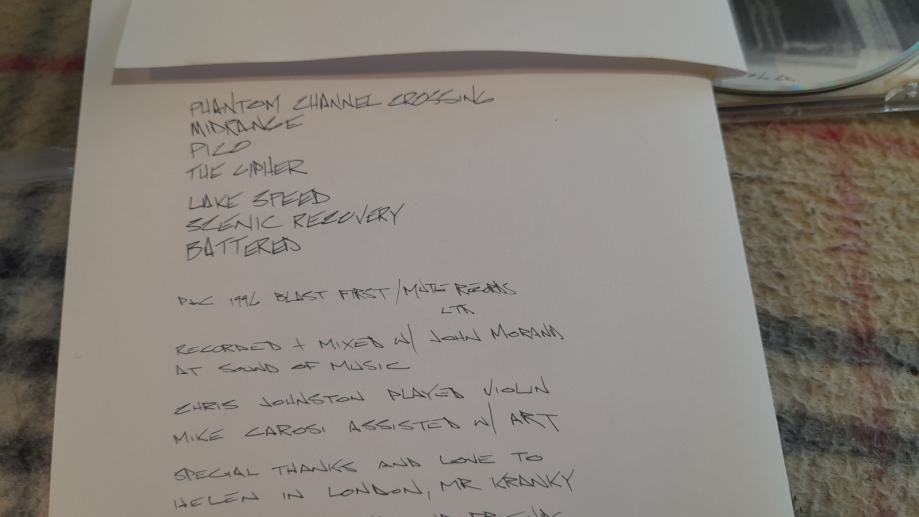 PHANTOM CHANNEL CROSSING
MIDRANGE
PICO
THE CIPHER
LAKE SPEED
SCENIC RECOVERY
BATTERED
P&C 1996 BLAST FIRST/MUTE RECORDS
LTD
RECORDED + MIXED W/ JOHN MORAND
AT SOUND OF MUSIC
CHRIS JOHNSTON PLAYED VIOLIN
MIKE CAROSI ASSISTED W/ ART
SPECIAL THANKS AND LOVE TO
HELEN IN LONDON, MR KRANKY